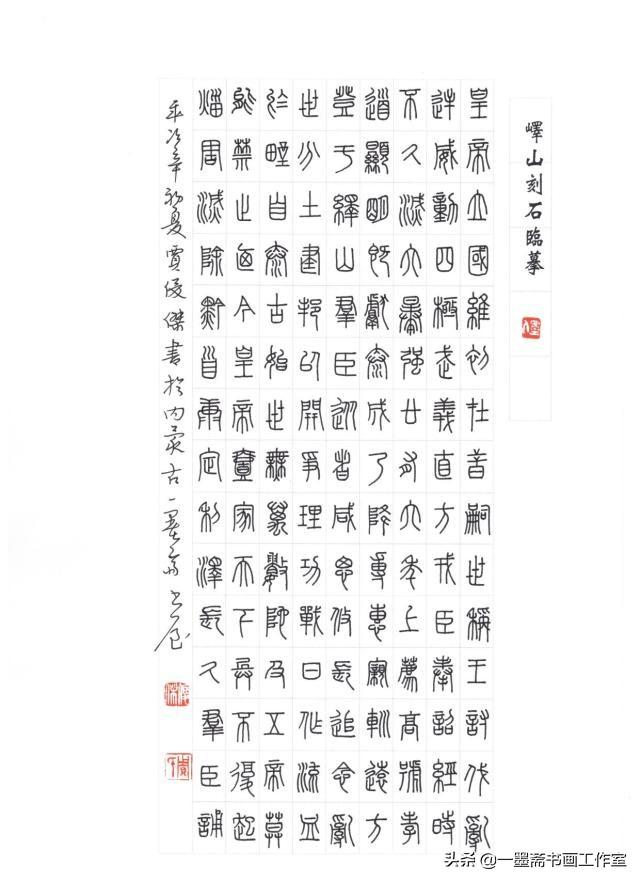 嶧山刻石臨摹
皇帝立國維初在昔嗣世稱王討伐亂
逆威動四極武義直方戎臣奉詔經時
不久滅六暴强廿有六年上薦高號孝
道顯明既獻泰成乃降專惠親巡遠方
登于繹山羣臣從者咸思攸長追念亂
世分土建邦以開爭理功戰日作流血
於野自泰古始世無萬數陀及五帝莫
能禁止廼今皇帝壹家天下兵不復起
災害滅除黔首康定利澤長久羣臣誦
次辛初夏賈俊傑書於内蒙古一墨斋
头条 @一墨斋书画工作室